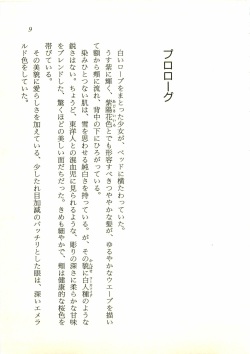 9
プロローグ
白いローブをまとった少女が、ベッドに横たわっていた。
うす紫に輝く、紫陽花色とでも形容すべきつややかな髪が、ゆるやかなウェーブを描い
て額から頬に流れ、背中の下にひろがっている。
染みひとつない肌は、雪を思わせる純白さを持っている。が、その貌に白人種のような
鋭さはない。ちょうど、東洋人との混血児に見られるような、彫りの深さに柔らかな甘味
をブレンドした、驚くほどの美しい面だちだった。きめも細やかで、頬は健康的な桜色を
帯びている。
その美貌に愛らしさを加えている、少したれ目加減のパッチリとした眼は、深いエメラ
ルド色をしていた。